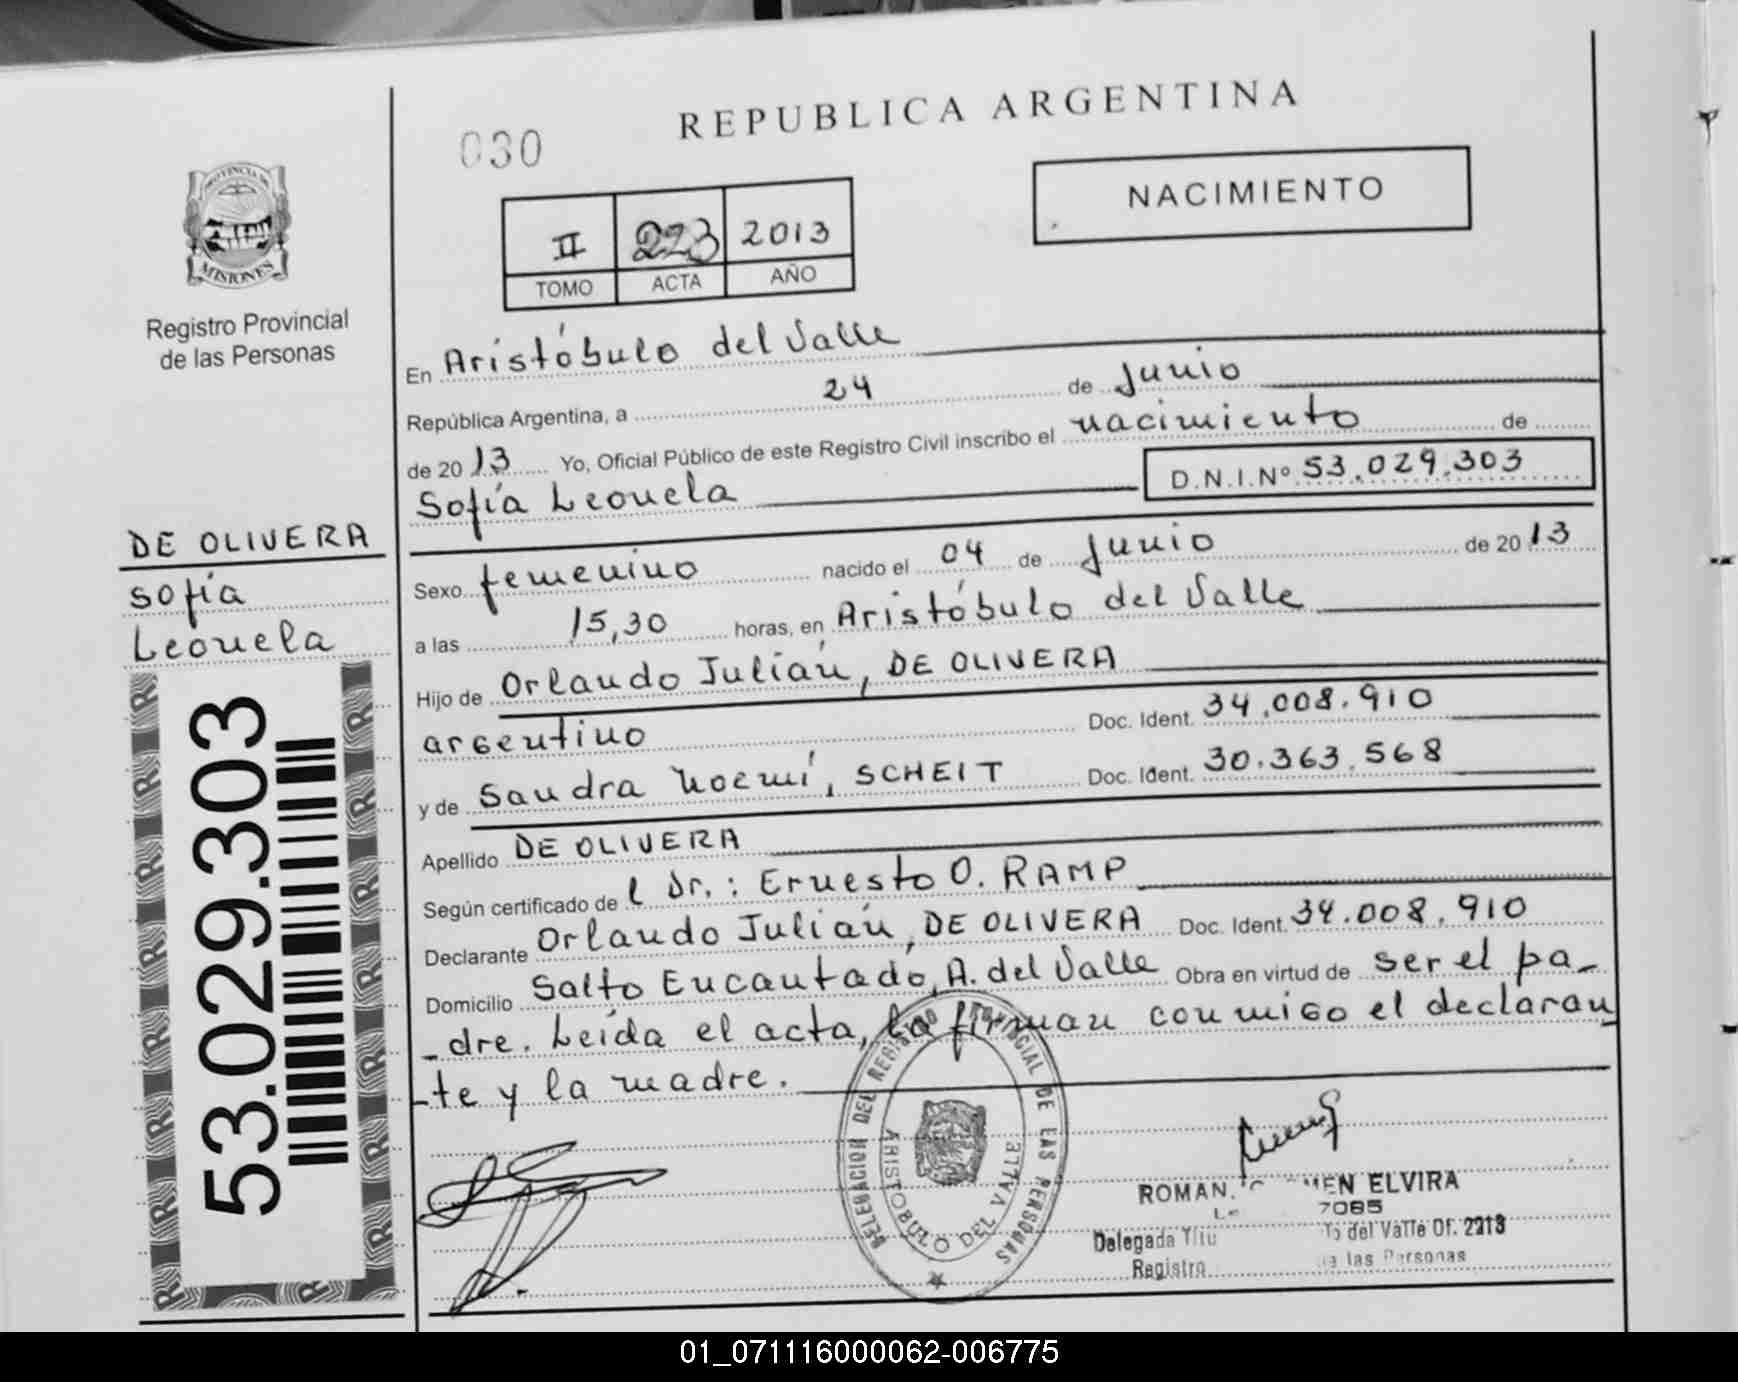 REPUBLICA ARGENTINA
030
NACIMIENTO
II 223 2013
TOMO ACTA AÑO
PROVINCIA DE
MISIONES
Registro Provincial
de las Personas
En Aristóbulo del Valle
República Argentina, a 24 de Junio
de 2013 Yo, Oficial Público de este Registro Civil inscribo el nacimiento de
Sofía Leonela D.N.I.Nº 53.029.303
DE OLIVERA
Sofía
Leonela
53.029.303
Sexo femenino nacido el 04 de Junio de 2013
a las 15,30 horas, en Aristóbulo del Valle
Hijo de Orlando Julián, DE OLIVERA
argentino Doc. Ident. 34.008.910
y de Sandra Noemí, SCHEIT Doc. Ident. 30.363.568
Apellido DE OLIVERA
Según certificado de l Dr.: Ernesto O. RAMP
Declarante Orlando Julián, DE OLIVERA Doc. Ident. 34.008.910
Domicilio Salto Encantado, A. del Valle Obra en virtud de ser el pa-
-dre. Leída el acta, la firman conmigo el declaran
-te y la madre.
DELEGACION DEL REGISTRO PROVINCIAL DE LAS PERSONAS
ARISTOBULO DEL VALLE
ROMAN, MEN ELVIRA
7085
Delegada Titu del Valle Of. 2213
Registro las Personas
01_071116000062-006775